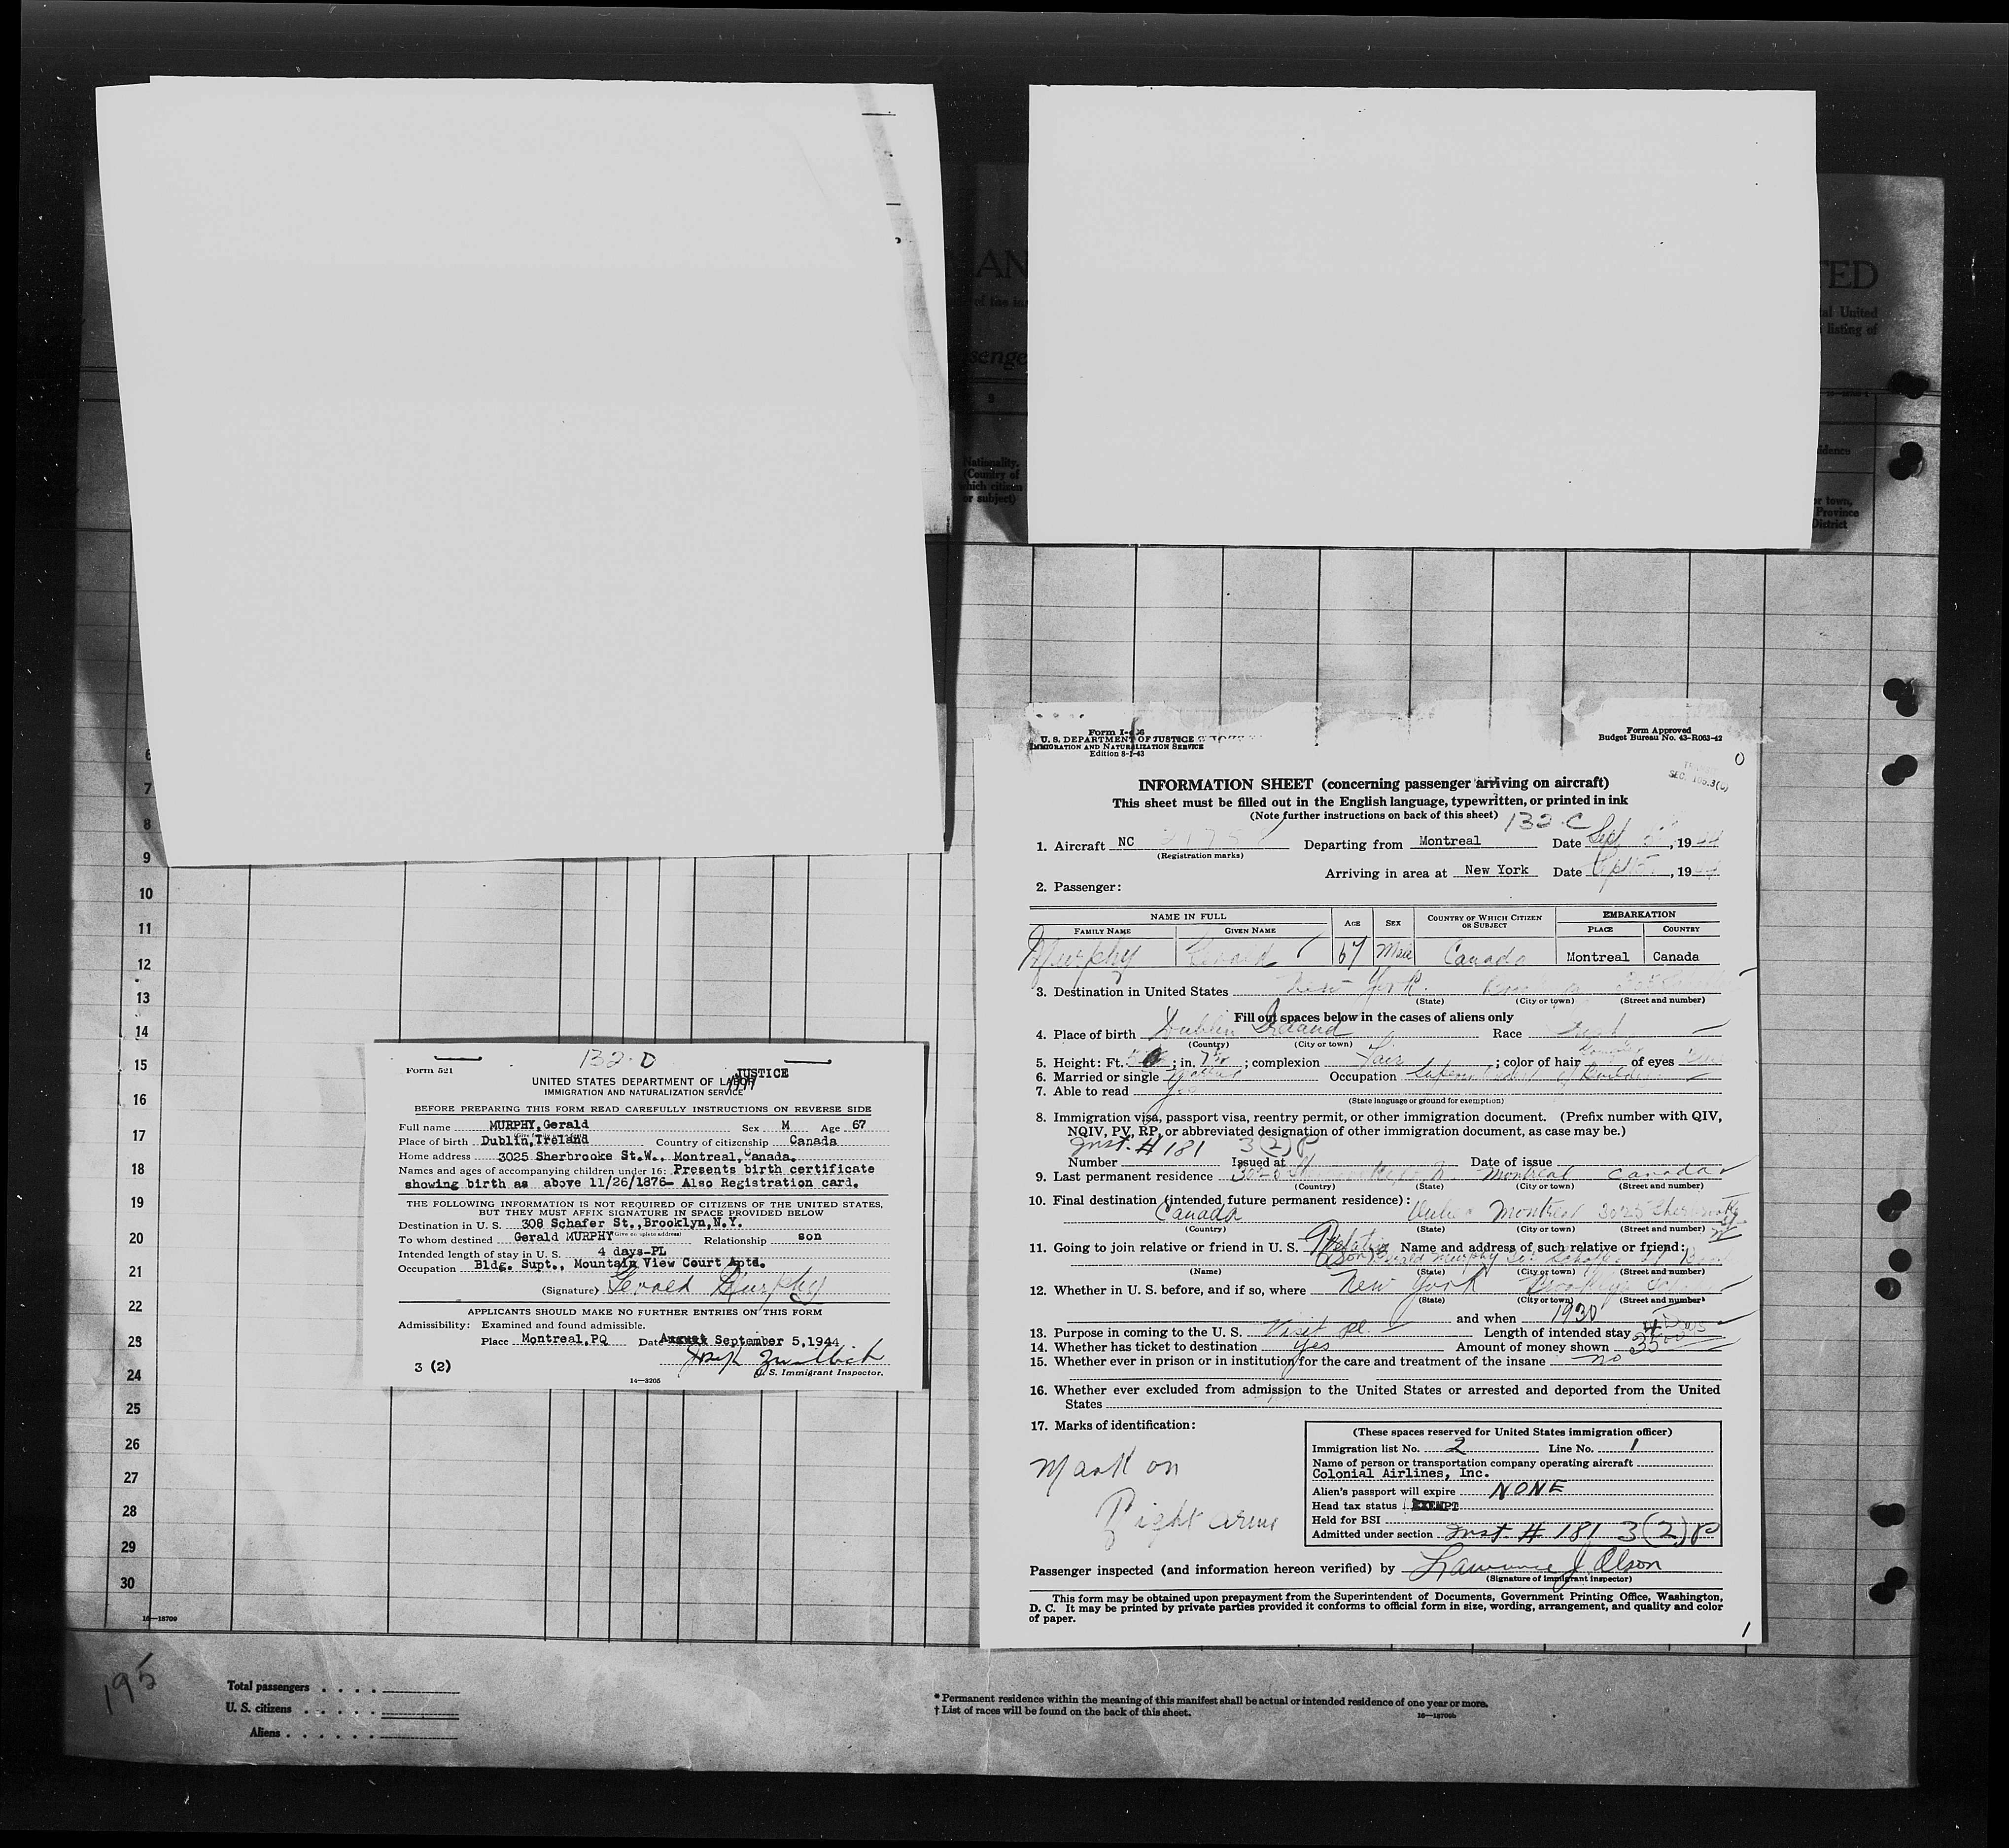 AN
TED
of the in
al United
listing of
senge
9
idence
Nationality.
(Country of
which citizen
or subject)
or town,
Province
District
6
7
8
9
10
11
12
13
14
15
16
17
18
19
20
21
22
23
24
25
26
27
28
29
30
16—18709
195
Total passengers . . . .
U. S. citizens . . . . .
Aliens . . . . . .
* Permanent residence within the meaning of this manifest shall be actual or intended residence of one year or more.
† List of races will be found on the back of this sheet.
16—18709b
132-D
Form 521
JUSTICE
UNITED STATES DEPARTMENT OF LABOR
IMMIGRATION AND NATURALIZATION SERVICE
BEFORE PREPARING THIS FORM READ CAREFULLY INSTRUCTIONS ON REVERSE SIDE
Full name MURPHY, Gerald Sex M Age 67
Place of birth Dublin, Ireland Country of citizenship Canada
Home address 3025 Sherbrooke St.W., Montreal, Canada.
Names and ages of accompanying children under 16: Presents birth certificate
showing birth as above 11/26/1876- Also Registration card.
THE FOLLOWING INFORMATION IS NOT REQUIRED OF CITIZENS OF THE UNITED STATES,
BUT THEY MUST AFFIX SIGNATURE IN SPACE PROVIDED BELOW
Destination in U. S. 308 Schafer St., Brooklyn, N.Y.
(Give complete address)
To whom destined Gerald MURPHY Relationship son
Intended length of stay in U. S. 4 days-PL
Occupation Bldg. Supt., Mountain View Court Aptd.
(Signature) Gerald Murphy
APPLICANTS SHOULD MAKE NO FURTHER ENTRIES ON THIS FORM
Admissibility: Examined and found admissible.
Place Montreal, PQ Date August September 5, 1944
U. S. Immigrant Inspector.
3 (2)
14—3205
Form I-466
U. S. DEPARTMENT OF JUSTICE
IMMIGRATION AND NATURALIZATION SERVICE
Edition 8-1-43
Form Approved
Budget Bureau No. 43-R063-42
0
SEC. 165.3(c)
INFORMATION SHEET (concerning passenger arriving on aircraft)
This sheet must be filled out in the English language, typewritten, or printed in ink
(Note further instructions on back of this sheet) 132-C
1. Aircraft NC Departing from Montreal Date Sept 5, 1944
(Registration marks)
Arriving in area at New York Date Sept 5, 1944
2. Passenger:
NAME IN FULL
AGE
SEX
COUNTRY OF WHICH CITIZEN OR SUBJECT
EMBARKATION
FAMILY NAME
GIVEN NAME
PLACE
COUNTRY
Murphy Gerald 67 Male Canada Montreal Canada
3. Destination in United States New York
(State) (City or town) (Street and number)
Fill out spaces below in the cases of aliens only
4. Place of birth Dublin Ireland Race Irish
(Country) (City or town)
5. Height: Ft. ; in. ; complexion Fair ; color of hair of eyes
6. Married or single Occupation Superintendent of Building
7. Able to read Yes
(State language or ground for exemption)
8. Immigration visa, passport visa, reentry permit, or other immigration document. (Prefix number with QIV,
NQIV, PV, RP, or abbreviated designation of other immigration document, as case may be.)
Inst. # 181 3(2)P
Number Issued at Date of issue
9. Last permanent residence 3025 Montreal Canada
(Country) (State) (City or town) (Street and number)
10. Final destination (intended future permanent residence):
Canada Montreal 3025 Sherbrooke
W
(Country) (State) (City or town) (Street and number)
11. Going to join relative or friend in U. S. Relative Name and address of such relative or friend:
(Son) Gerald Murphy
(Name) (State) (City or town) (Street and number)
12. Whether in U. S. before, and if so, where New York Brooklyn
(State) (City or town) (Street and number)
and when 1930
13. Purpose in coming to the U. S. Visit Pl. Length of intended stay 4 Days
14. Whether has ticket to destination Yes Amount of money shown 35 00
15. Whether ever in prison or in institution for the care and treatment of the insane no
16. Whether ever excluded from admission to the United States or arrested and deported from the United
States
17. Marks of identification:
Mark on
Right arm
(These spaces reserved for United States immigration officer)
Immigration list No. 2 Line No. 1
Name of person or transportation company operating aircraft
Colonial Airlines, Inc.
Alien's passport will expire NONE
Head tax status EXEMPT
Held for BSI
Admitted under section Inst. # 181 3(2)P
Passenger inspected (and information hereon verified) by Lawrence J Olson
(Signature of immigrant inspector)
This form may be obtained upon prepayment from the Superintendent of Documents, Government Printing Office, Washington,
D. C. It may be printed by private parties provided it conforms to official form in size, wording, arrangement, and quality and color
of paper.
1